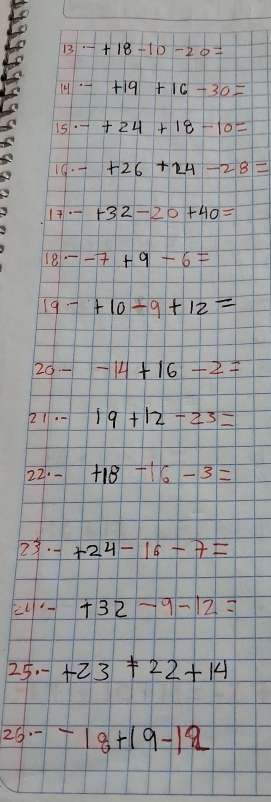 13.- +18-10-20=
14.- +19 +16-30=
15.- +24 +18-10=
16.- +26 +24-28=
17.- +32-20+40=
18.- -7+9-6=
19.- +10-9+12=
20.- -14+16-2=
21.- 19+12-23=
22.- +18-16-3=
23.- +24-16-7=
24.- +32-9-12=
25.- +23+22+14
26.- -18+19-12